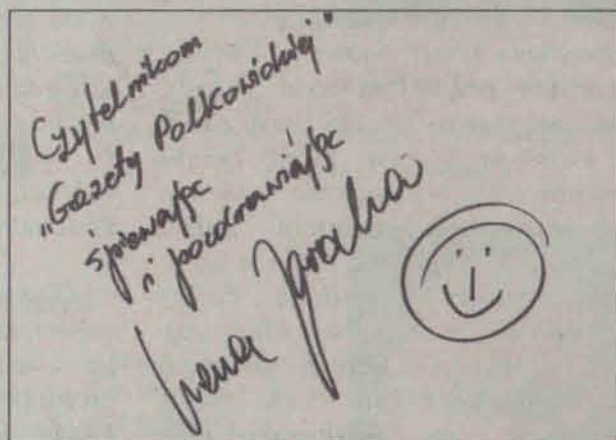 Czytelnikom
„Gazety Polkowickiej"
śpiewając
i pozdrawiając
Irena Jarocka